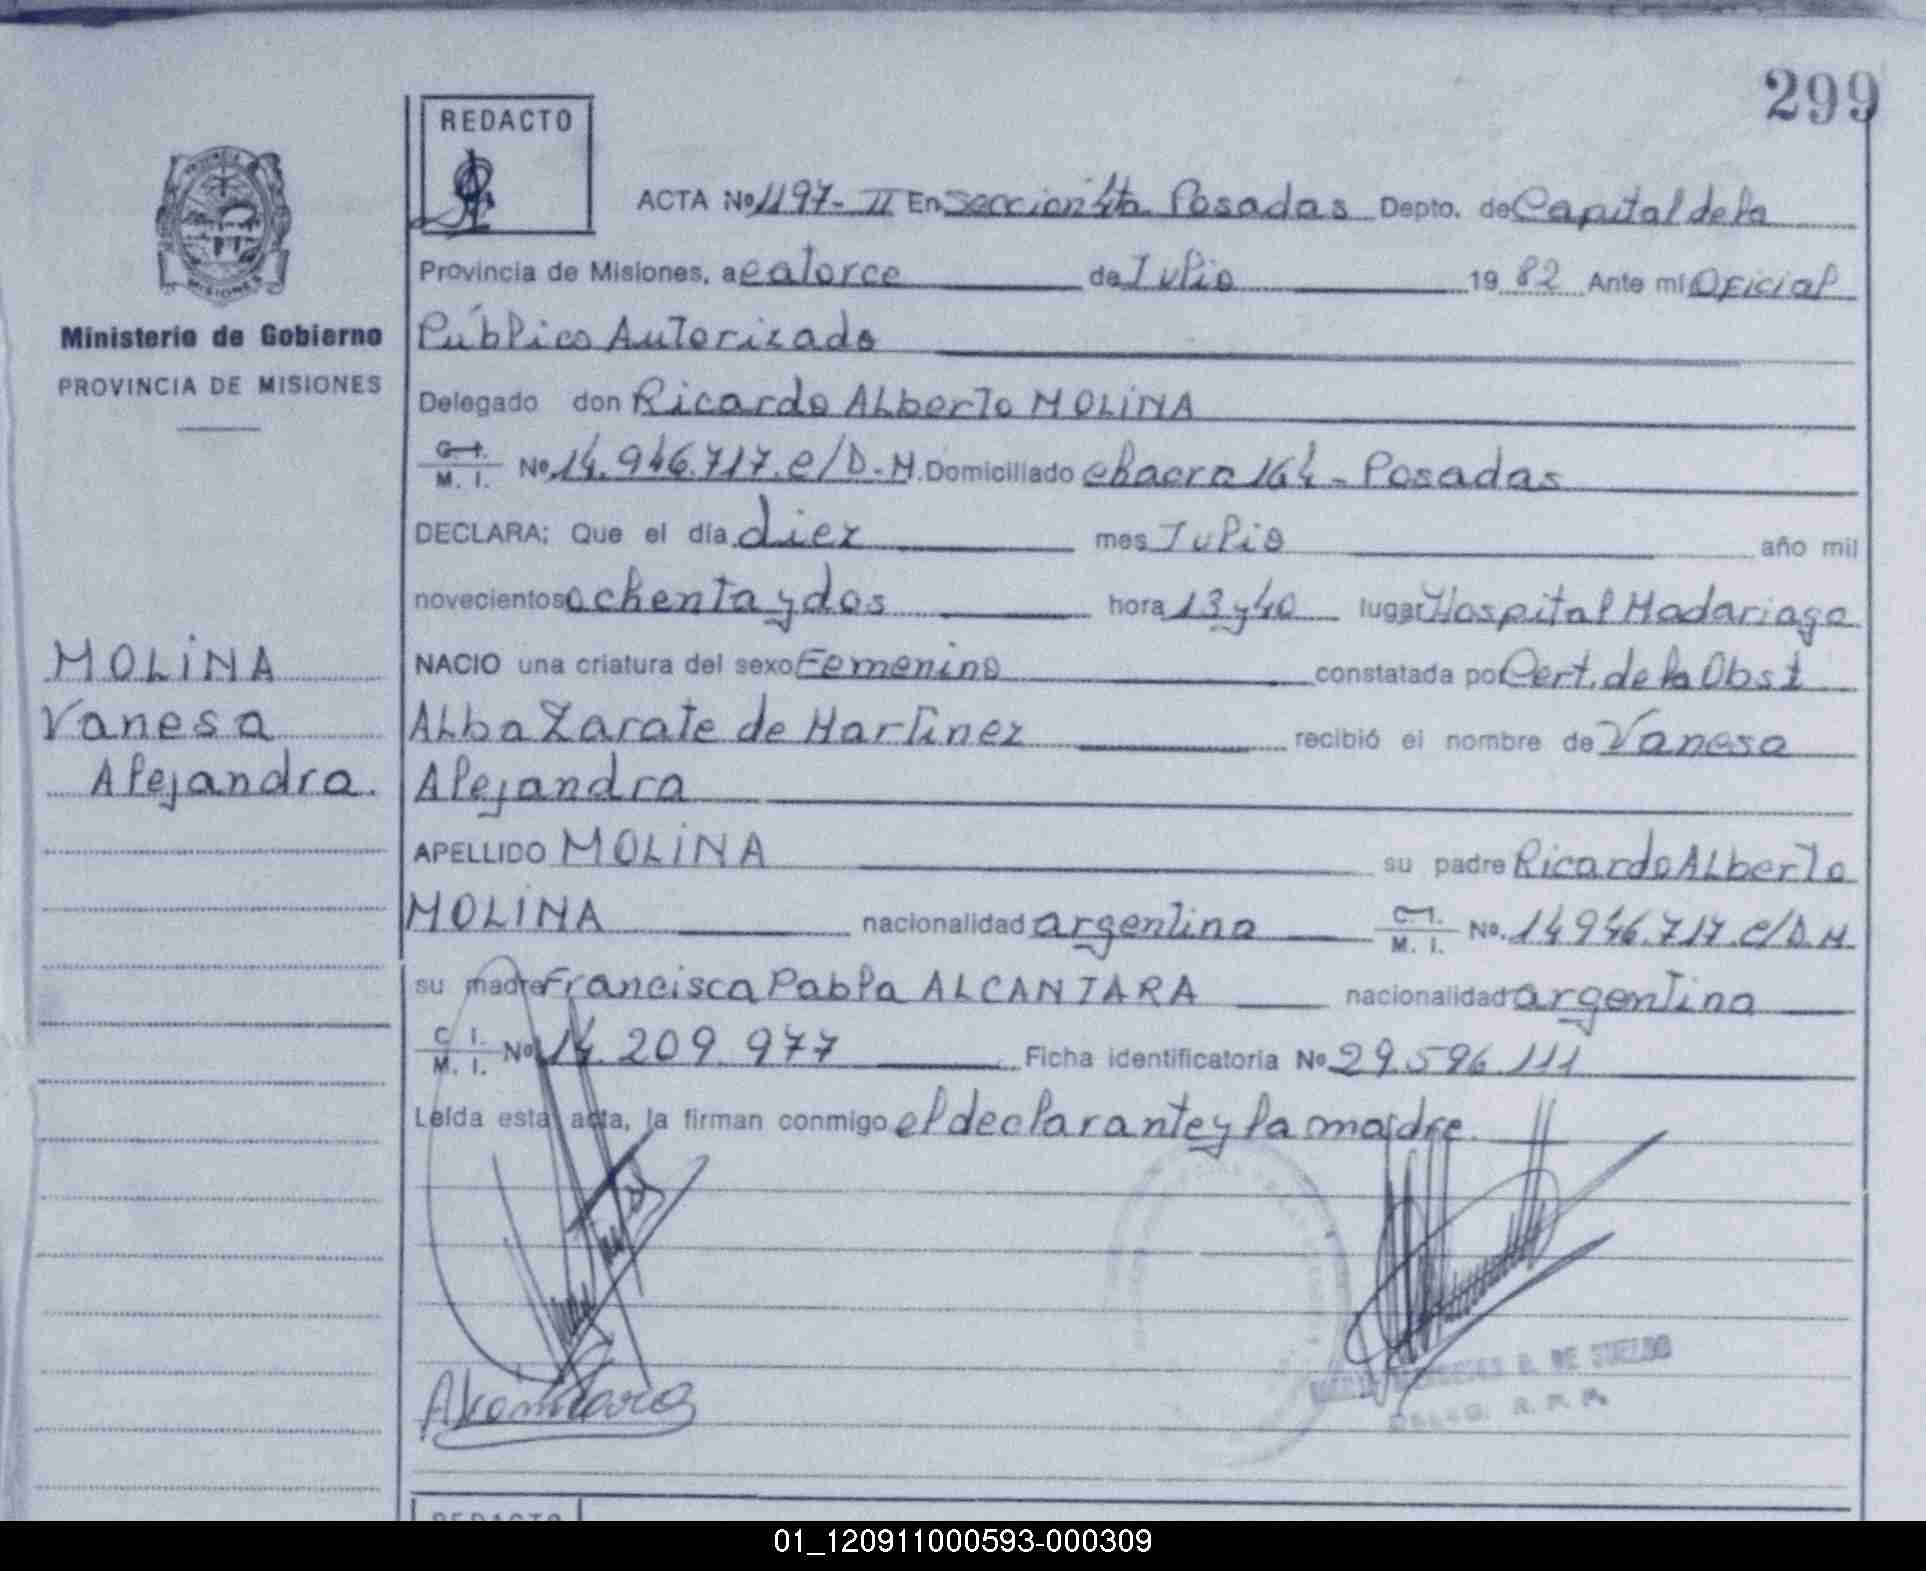 299
REDACTO
ACTA No 1197- II En Sección 4ta. Posadas Depto. de Capital de la
Provincia de Misiones, a catorce de Julio 19 82 Ante mi Oficial
Ministerio de Gobierno
PROVINCIA DE MISIONES
Público Autorizado
Delegado don Ricardo ALberto MOLINA
C. I. M. I. No 14.946.717.c/D.M. Domiciliado chacra 164 - Posadas
DECLARA: Que el día diez mes Julio año mil
novecientos ochenta y dos hora 13 y 40 lugar Hospital Madariaga
MOLINA
Vanesa
Alejandra.
NACIO una criatura del sexo Femenino constatada por Cert. de la Obst
ALba Zarate de Martinez recibió el nombre de Vanesa
Alejandra
APELLIDO MOLINA su padre Ricardo ALberto
MOLINA nacionalidad argentina C. I. M. I. No. 14946.717.c/D.M.
su madre Francisca Pabla ALCANTARA nacionalidad argentina
C. I. M. I. No 14.209.977 Ficha identificatoria No 29.596.111
Leída esta acta, la firman conmigo el declarante y la madre.
DE SUELDO
DELEG. R. P. P.
REDACTO
01_120911000593-000309